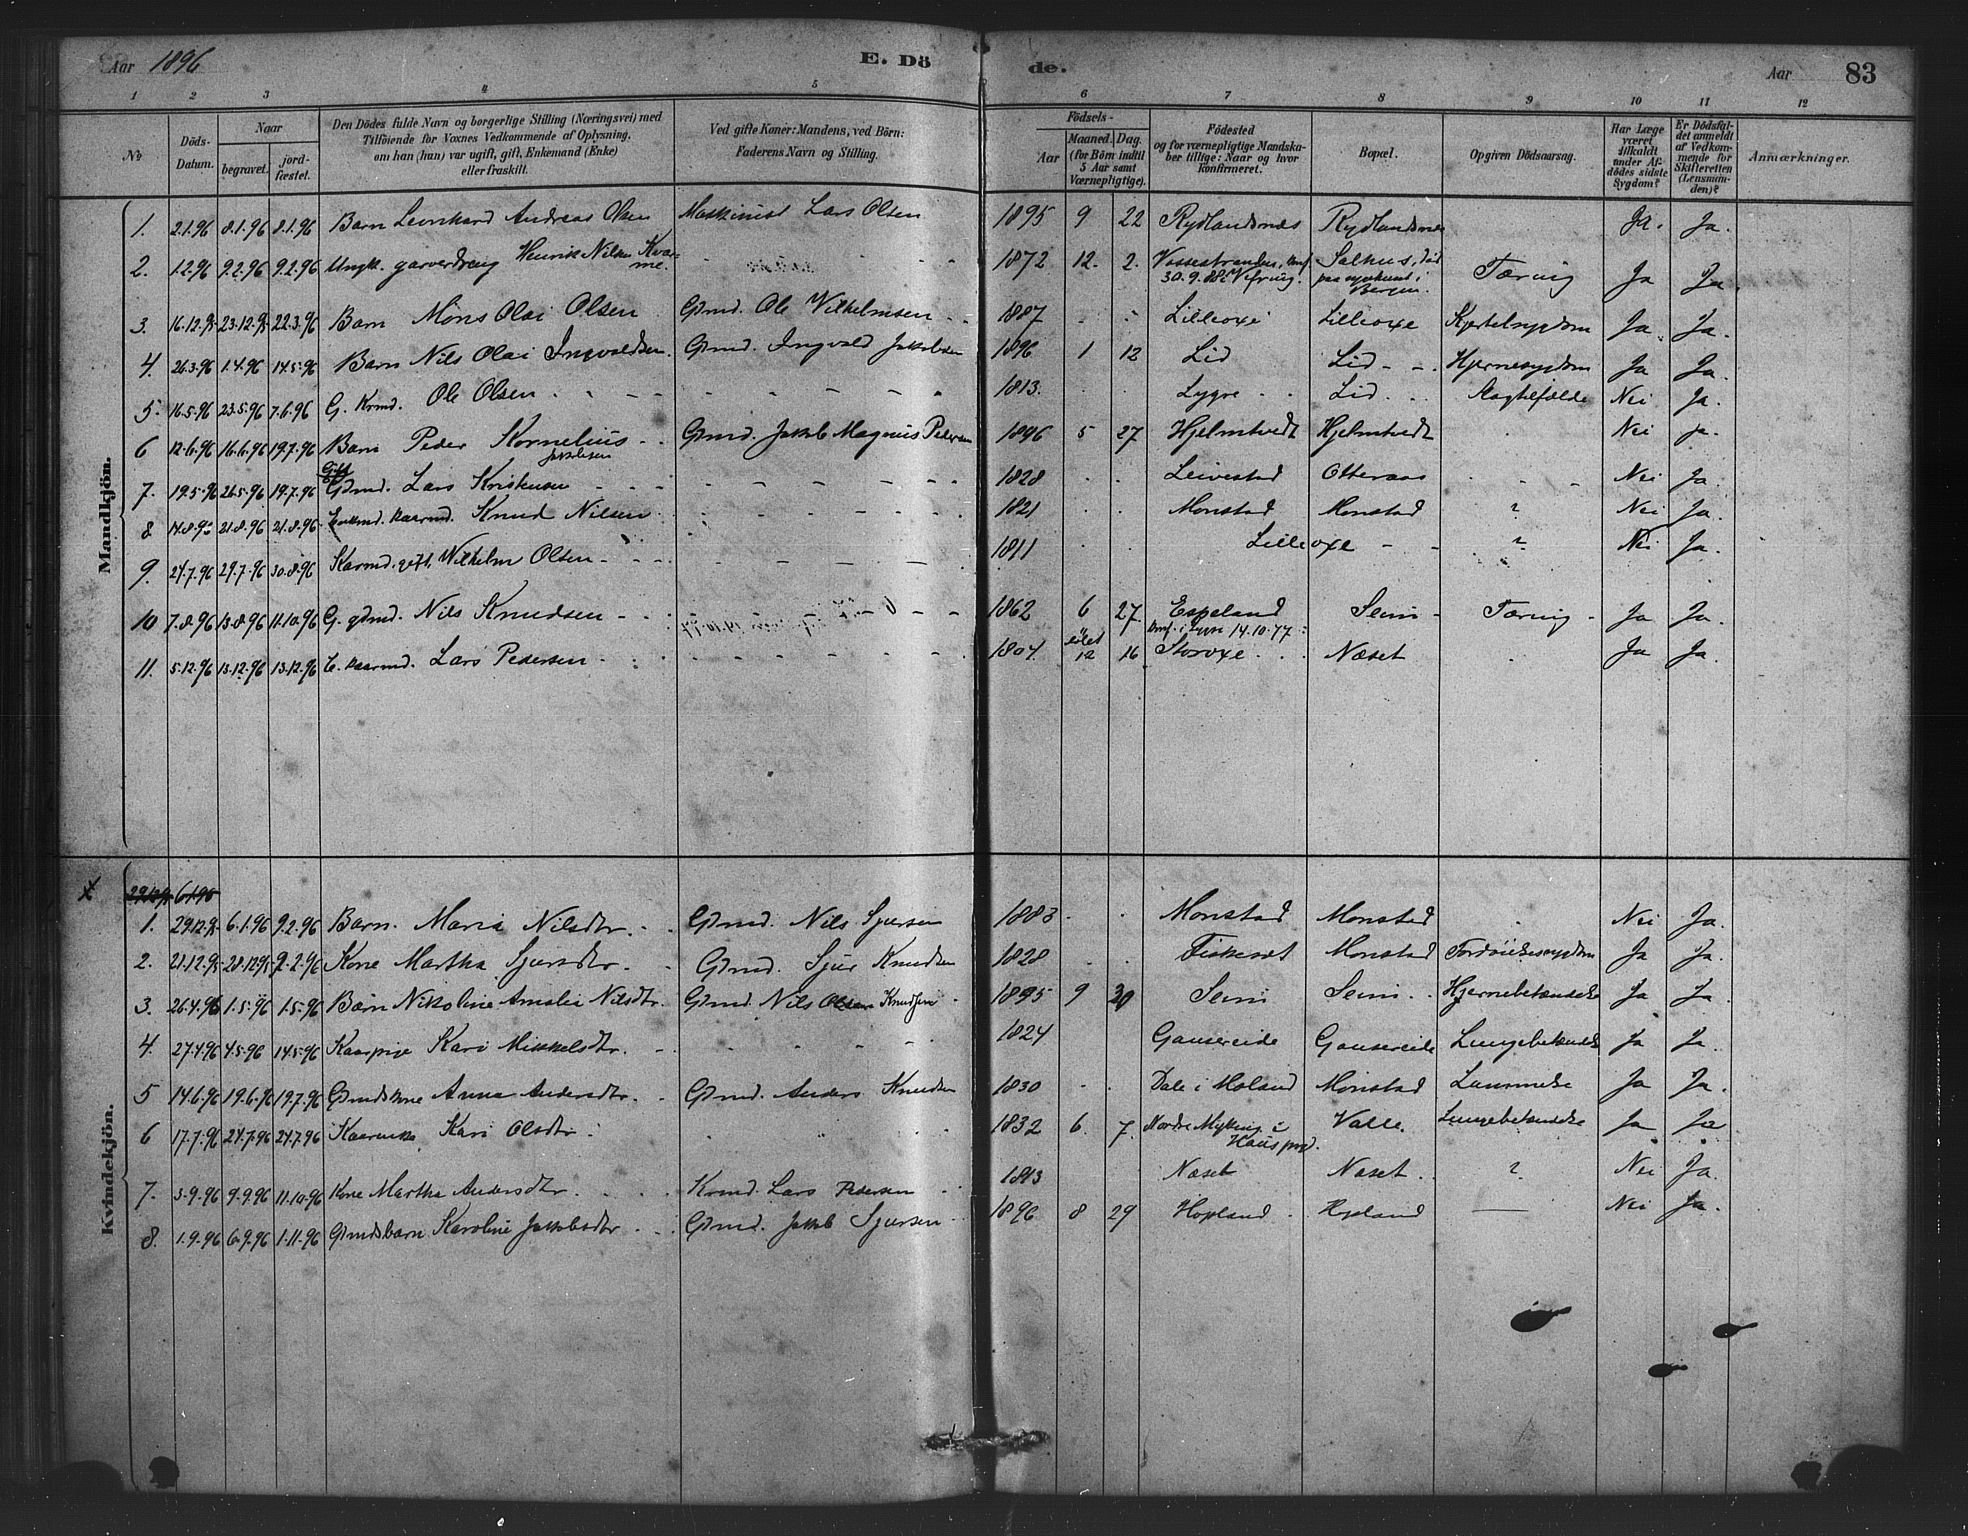 Aar 1896 E. Dö de. Aar 83
1 2 3 4 5 6 7 8 9 10 11 12
No
Döds-Datum.
Naar
begravet.
jord-fæstet.
Den Dödes fulde Navn og borgerlige Stilling (Næringsvei) med
Tilföiende for Voxnes Vedkommende af Oplysning,
om han (hun) var ugift, gift, Enkemand (Enke)
eller fraskilt.
Ved gifte Koner: Mandens, ved Börn:
Faderens Navn og Stilling.
Födsels-
Aar
Maaned. Dag.
(for Börn indtil
5 Aar samt
Værnepligtige).
Födested
og for værnepligtige Mandska-
ber tillige: Naar og hvor
konfirmeret.
Bopæl.
Opgiven Dödsaarsag.
Har Læge
været
tilkaldt
under Af-
dödes sidste
Sygdom?
Er Dödsfal-
det anmeldt
af Vedkom-
mende for
Skifteretten
(Lensman-
den)?
Anmærkninger.
Mandkjön.
1. 2.1.96 8.1.96 8.1.96 Barn Leonhard Andreas Olsen Maskinist Lars Olsen 1895 9 22 Rydlandsnes Rydlandsnes Ja. Ja.
2. 1.2.96 9.2.96 9.2.96 Ungk. garverdreng Henrik Nilsen Kvarme 1872 12. 2. Vossestranden, konf. 30.9.88 i Salhus, død paa sygehuset i Bergen. Tæring Ja Ja.
3. 16.12.95 23.12.95 22.3.96 Barn Mons Olai Olsen Gbmd. Ole Vilhelmsen 1887 Lilleoxe Lilleoxe Kjertelsygdom Ja. Ja.
4. 26.3.96 1.4.96 14.5.96 Barn Nils Olai Ingvaldsen. Gbmd. Ingvald Jakobsen 1896 1 12 Lid Lid Hjernesygdom Ja Ja.
5. 16.5.96 23.5.96 7.6.96 G. Krmd. Ole Olsen 1813. Lygre Lid Slagtilfælde Nei Ja.
6 12.6.96 16.6.96 19.7.96 Barn Peder Kornelius Jakobsen Gbmd. Jakob Magnus Pedersen 1896 5 27 Hjelmtvedt Hjelmtvedt Nei Ja.
7. 19.5.96 26.5.96 19.7.96 Gift Gbmd. Lars Kristensen 1828 Leivestad Otteraas Nei Ja.
8 14.8.96 21.8.96 21.8.96 Enkmd. kaarmd. Knud Nilsen 1821 Monstad Monstad ? Nei Ja.
9. 24.7.96 29.7.96 30.8.96 Karmd. gift. Wilhelm Olsen 1811 Lilleoxe ? Nei Ja.
10 7.8.96 13.8.96 11.10.96 G. gbmd. Nils Knudsen 1862 6 27 Espeland konf. i Lygre 14.10.77 Seim Tæring Ja Ja.
11. 5.12.96 13.12.96 13.12.96 E. kaarmd. Lars Pedersen 1804. 12 16 Storoxe Næset Ja Ja.
Kvindekjön.
29.12.95 6.1.96
1. 29.12.95 6.1.96 9.2.96 Barn. Maria Nilsdtr. Gbmd. Nils Sjursen 1883 Monstad Monstad Nei Ja.
2. 21.12.95 28.12.95 9.2.96 Kone Martha Sjursdtr. Gbmd. Sjur Knudsen 1828 Fiskeset Monstad Fordøielsessygdom Ja Ja.
3. 26.4.96 1.5.96 1.5.96 Barn Nikoline Amalie Nilsdtr. Gbmd. Nils Olsen Knudsen 1895 9 30 Seim Seim Hjernebetændelse Ja Ja.
4. 27.4.96 4.5.96 14.5.96 Kaarpige Kari Mikkelsdtr. 1824 Gausereide Gausereide Lungebetændelse Ja Ja.
5 14.6.96 19.6.96 19.7.96 Gbmdskone Anna Andersdtr. Gbmd. Anders Knudsen 1830 Dale i Moland Monstad Lammelse Ja Ja.
6 17.7.96 24.7.96 24.7.96 Kaarenke Kari Olsdtr. 1832 6. 7. Nordre Myking i Haus prgd. Valle. Lungebetændelse Ja Ja
7. 3.9.96 9.9.96 11.10.96 Kone Martha Andersdtr. Krmd. Lars Pedersen 1813 Næset Næset ? Nei Ja.
8. 1.9.96 6.9.96 1.11.96 Gbmdsbarn Karoline Jakobsdtr. Gbmd. Jakob Sjursen 1896 8 29 Hopland Hopland Nei Ja.